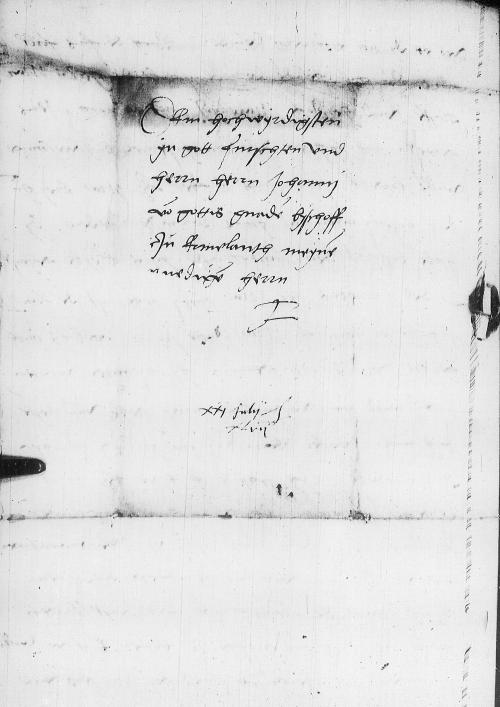 Dem hochwyrdigsten
yn gott furschten und
herrn herrn Johanni
vo gottis gnade byschoff
In Ermelanth meyne
gnedige herrn
XXI Julij